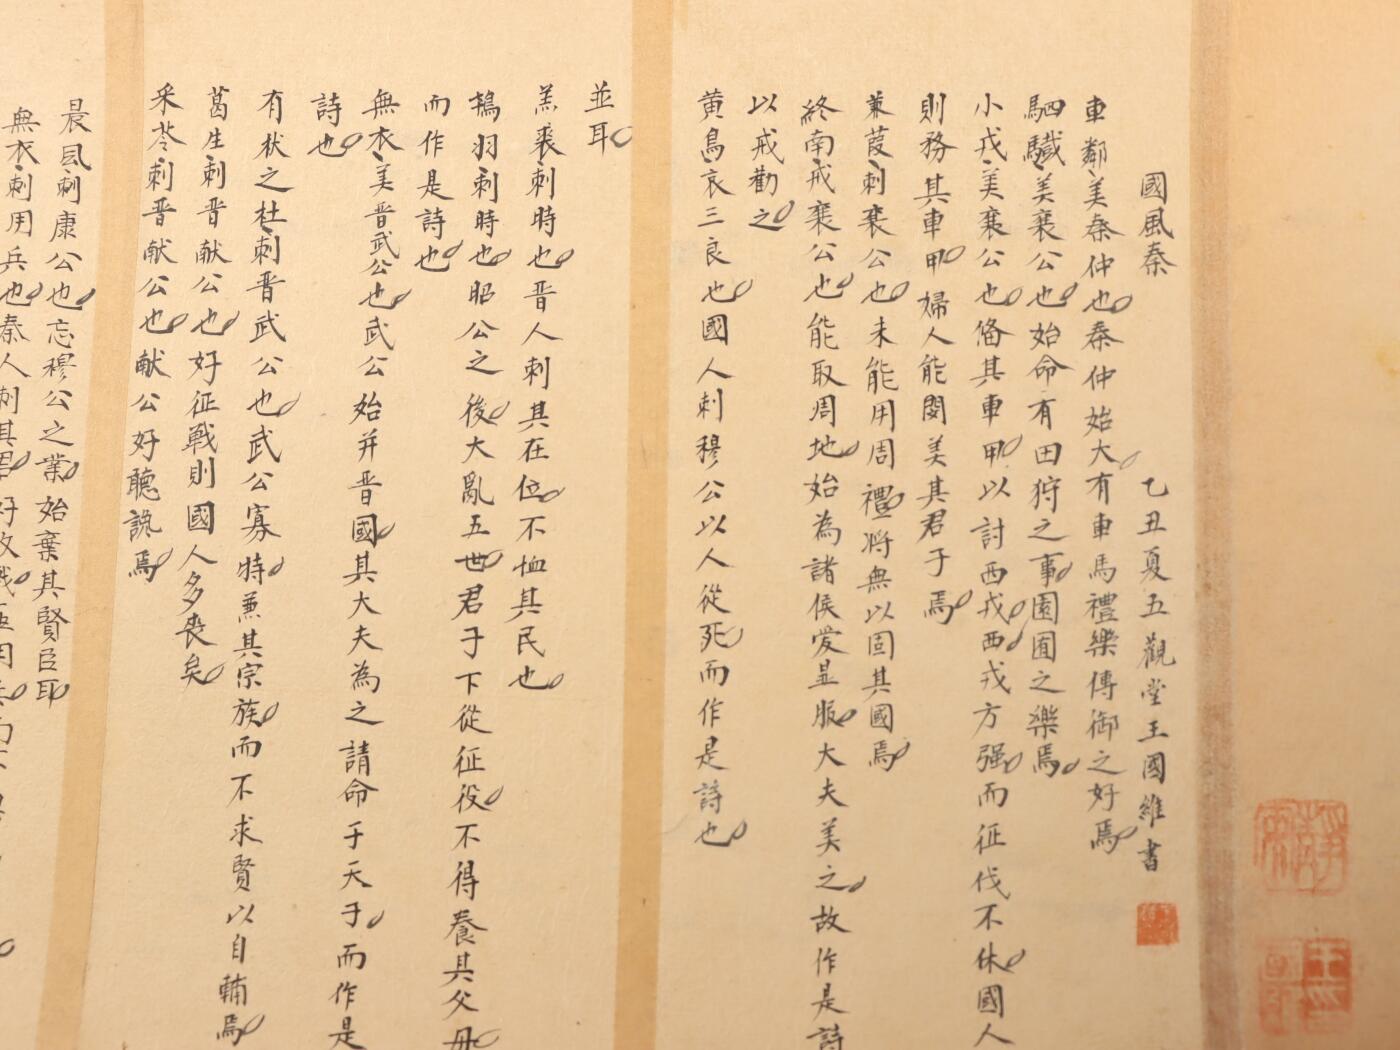 國風秦　乙丑夏五觀堂王國維書
車鄰美秦仲也秦仲始大有車馬禮樂傳御之好焉
駟驖美襄公也始命有田狩之事園囿之樂焉
小戎美襄公也俻其車甲以討西戎西戎方强而征伐不休國人
則務其車甲婦人能閔美其君子焉
蒹葭刺襄公也未能用周禮將無以固其國焉
終南戒襄公也能取周地始為諸侯爱显服大夫美之故作是詩
以戒勸之
黄鳥哀三良也國人刺穆公以人從死而作是詩也
並耳
羔裘刺時也晋人刺其在位不恤其民也
鴇羽刺時也昭公之後大亂五世君子下從征役不得養其父母
而作是詩也
無衣美晋武公也武公始并晋國其大夫為之請命于天子而作是
詩也
有杕之杜刺晋武公也武公寡特兼其宗族而不求賢以自輔焉
葛生刺晋献公也好征戰則國人多喪矣
采苓刺晋献公也献公好聽讒焉
晨風刺康公也忘穆公之業始棄其賢臣耶
無衣刺用兵也秦人刺其君好攻戰亟用兵而不與